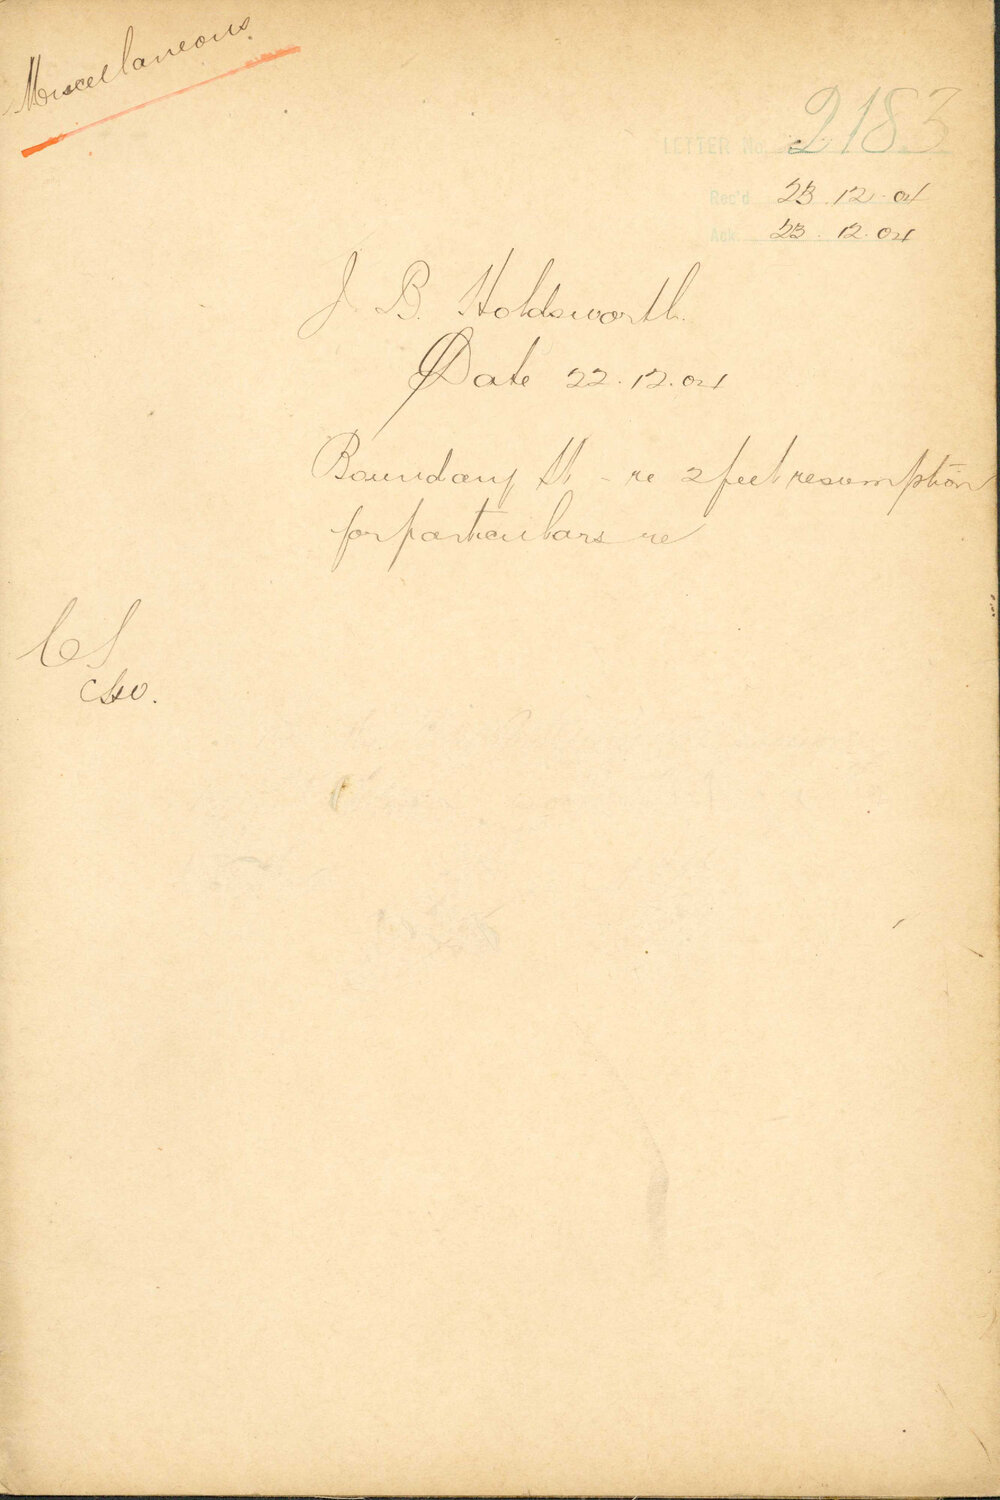 Miscellaneous.
LETTER No. 2183
Rec'd 23.12.04
Ack. 23.12.04
J. B. Holdsworth.
Date 22.12.04
Boundary St - re 2 feet resumption
for particulars re
CS